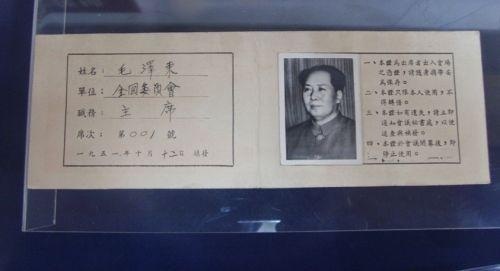 姓名：毛澤東
單位：全國委員會
職務：主席
席次：第001號
一九五一年十月十二日 填發
一、本證爲出席者出入會場
之憑證，請隨身携帶妥
爲保存。
二、本證只限本人使用，不
得轉借。
三、本證如有遺失，請立即
通知會議秘書處，以便
追查與補發。
四、本證於會議閉幕後，即
停止使用。